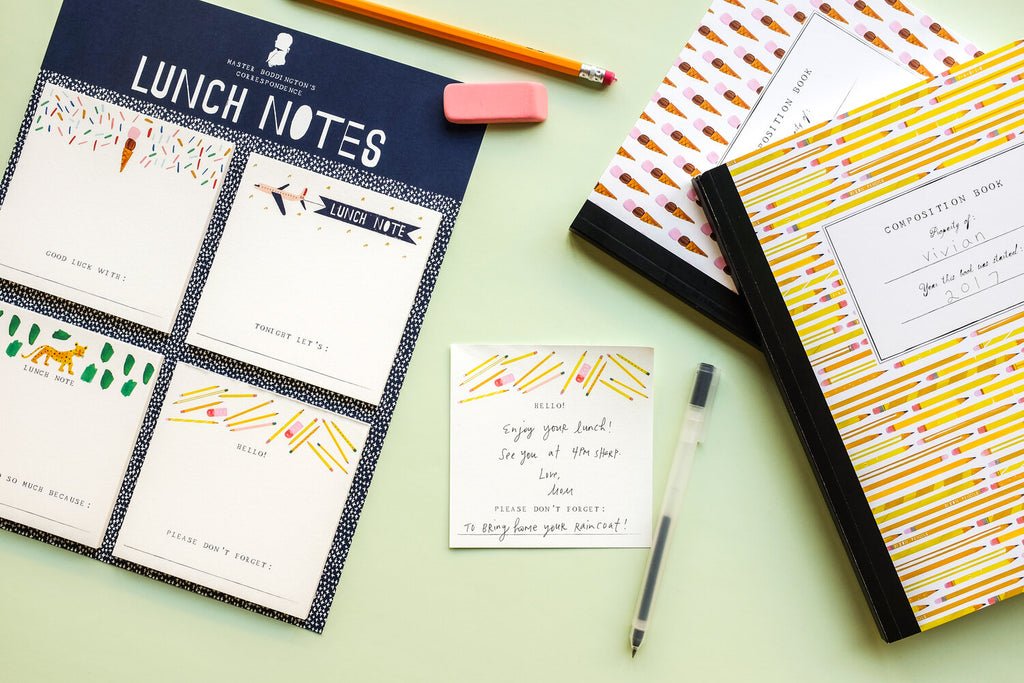 MASTER BODDINGTON'S
CORRESPONDENCE
LUNCH NOTES
GOOD LUCK WITH:
LUNCH NOTE
TONIGHT LET'S:
LUNCH NOTE
SO MUCH BECAUSE:
HELLO!
PLEASE DON'T FORGET:
HELLO!
Enjoy your lunch!
See you at 4PM SHARP.
Love,
Mom
PLEASE DON'T FORGET:
TO BRING home your RAINCOAT!
POSITION BOOK
COMPOSITION BOOK
Property of:
Vivian
Year this book was started:
2017